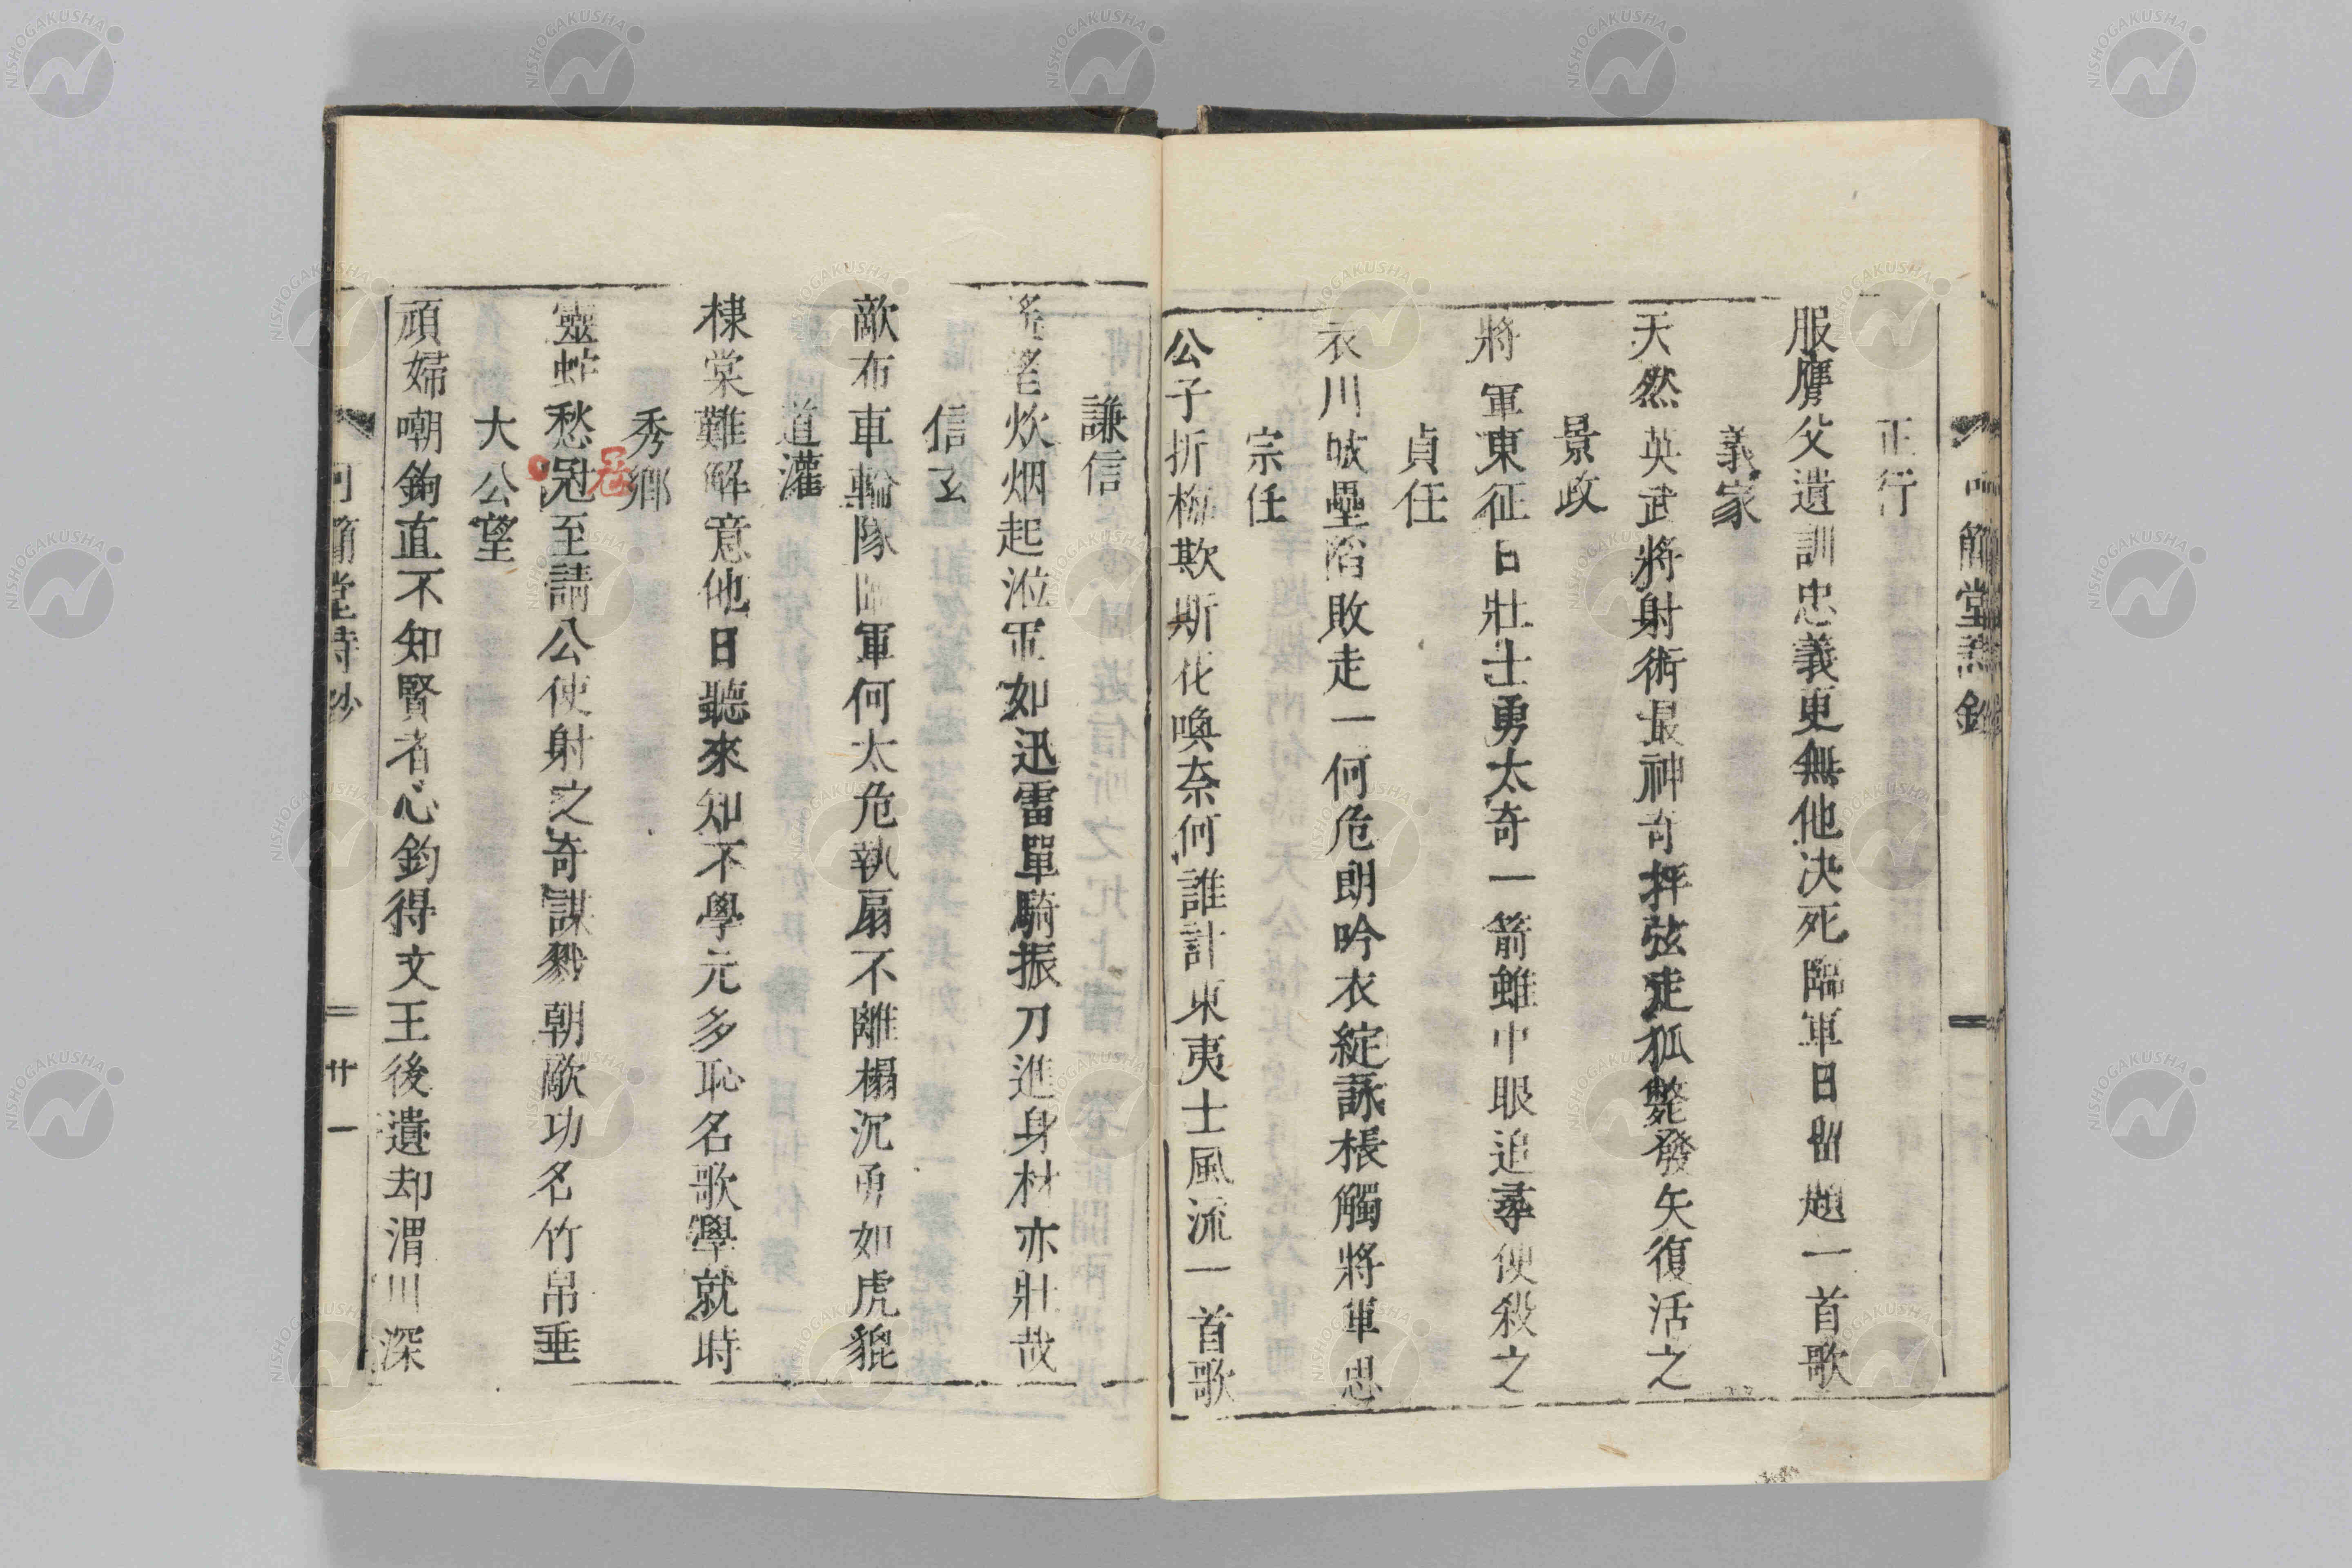 正行
服膺父遺訓忠義更無他决死臨軍日留題一首歌
義家
天然英武將射術最神奇抨弦走狐斃發矢復活之
景政
將軍東征日壯士勇太奇一箭雖中眼追尋便殺之
貞任
衣川城壘陷敗走一何危朗吟衣綻詠棖觸將軍思
宗任
公子折梅欺斯花喚奈何誰計東夷士風流一首歌
謙信
炊烟起涖軍如迅雷單騎振刀進身材亦壯哉
信玄
敵布車輪隊臨軍何太危執扇不離榻沉勇如虎貔
道灌
棣棠難解意他日聽來知不學元多恥名歌學就時
秀郷
靈蛇愁冠至請公使射之奇謀戮朝敵功名竹帛垂
寇
大公望
頑婦嘲鉤直不知賢者心鈞得文王後遺却渭川深
簡堂詩鈔
廿一
NISHOGAKUSHA